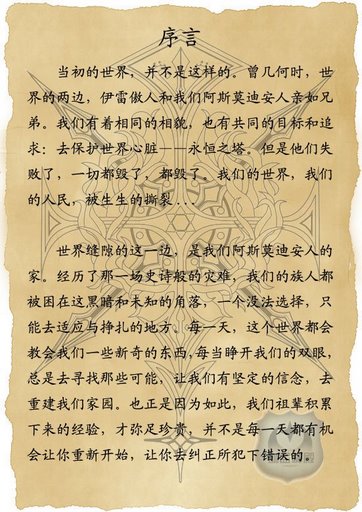 序言
当初的世界，并不是这样的。曾几何时，世
界的两边，伊雷傲人和我们阿斯莫迪安人亲如兄
弟。我们有着相同的相貌，也有共同的目标和追
求：去保护世界心脏——永恒之塔。但是他们失
败了，一切都毁了，都毁了。我们的世界，我们
的人民，被生生的撕裂...
世界缝隙的这一边，是我们阿斯莫迪安人的
家。经历了那一场史诗般的灾难，我们的族人都
被困在这黑暗和未知的角落，一个没法选择，只
能去适应与挣扎的地方。每一天，这个世界都会
教会我们一些新奇的东西，每当睁开我们的双眼，
总是去寻找那些可能，让我们有坚定的信念，去
重建我们家园。也正是因为如此，我们祖辈积累
下来的经验，才弥足珍贵，并不是每一天都有机
会让你重新开始，让你去纠正所犯下错误的。